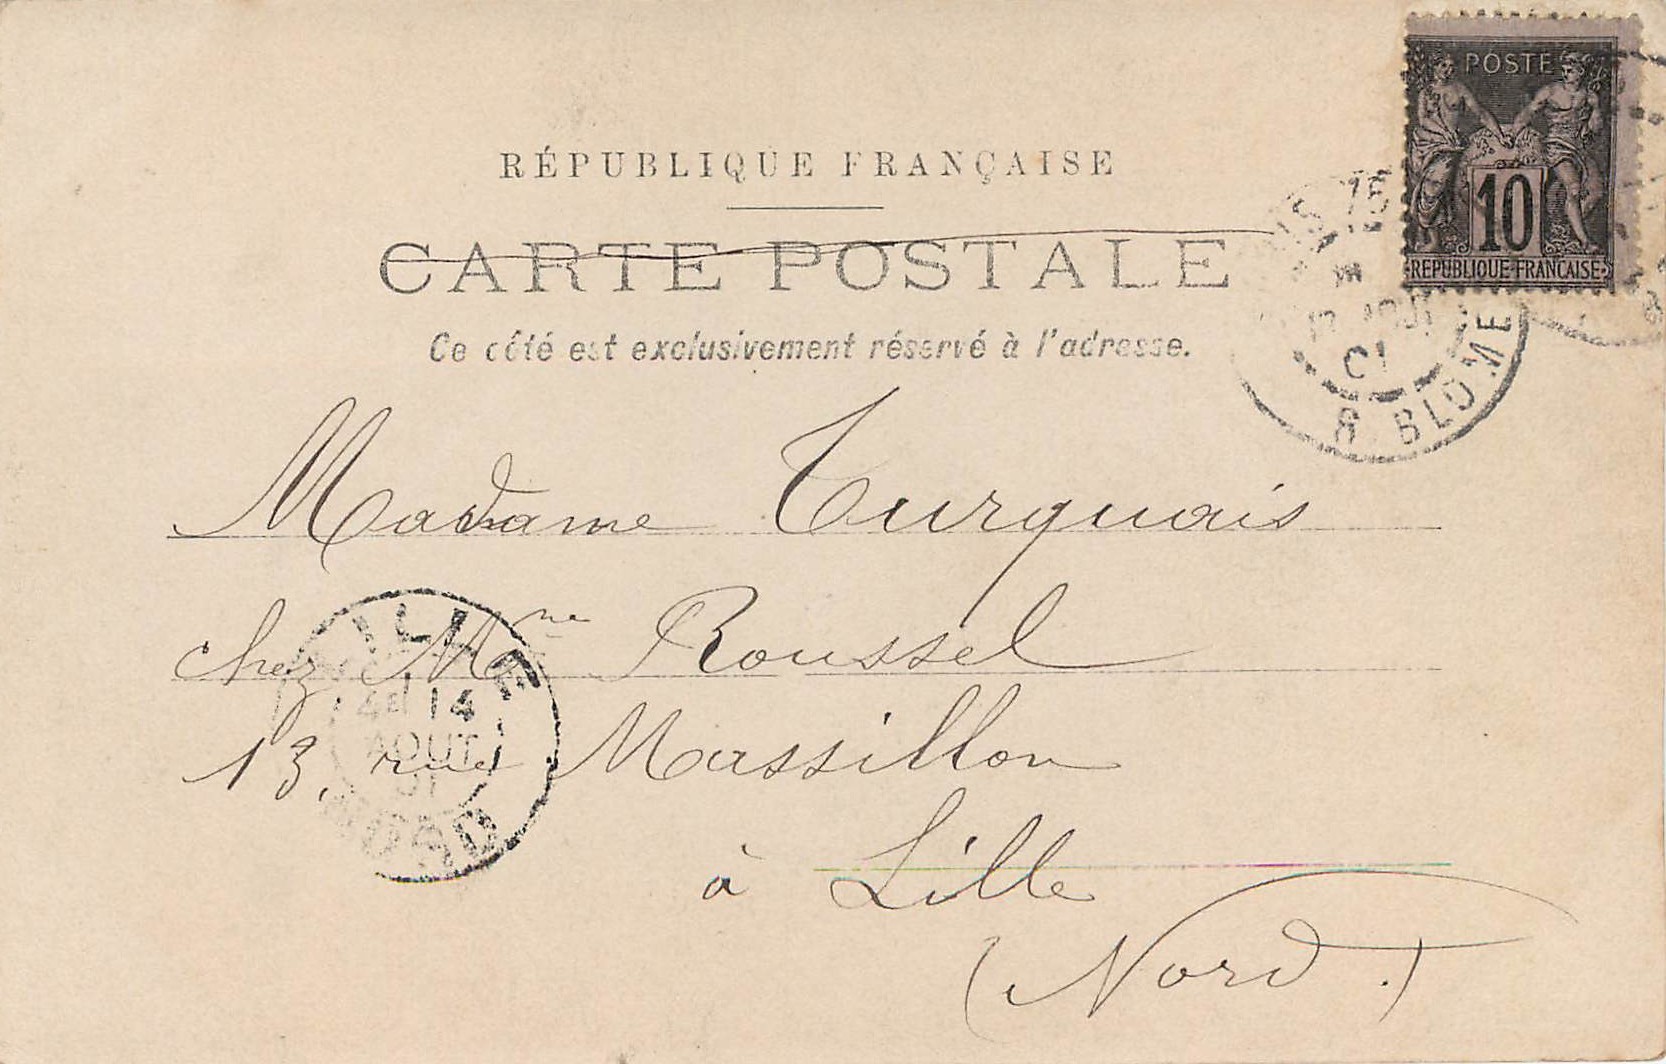 RÉPUBLIQUE FRANÇAISE
CARTE POSTALE
Ce côté est exclusivement réservé à l'adresse.
POSTE
10
REPUBLIQUE FRANCAISE
15
AOUT
01
R BLOMET
Madame Turquais
chez Mme Roussel
13, rue Massillon
à Lille
(Nord.)
LILLE
4E 14
AOUT
01
NORD